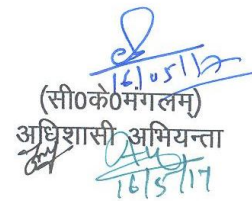 16/05/17
(सी0के0मंगलम)
अधिशासी अभियन्ता
16/5/17